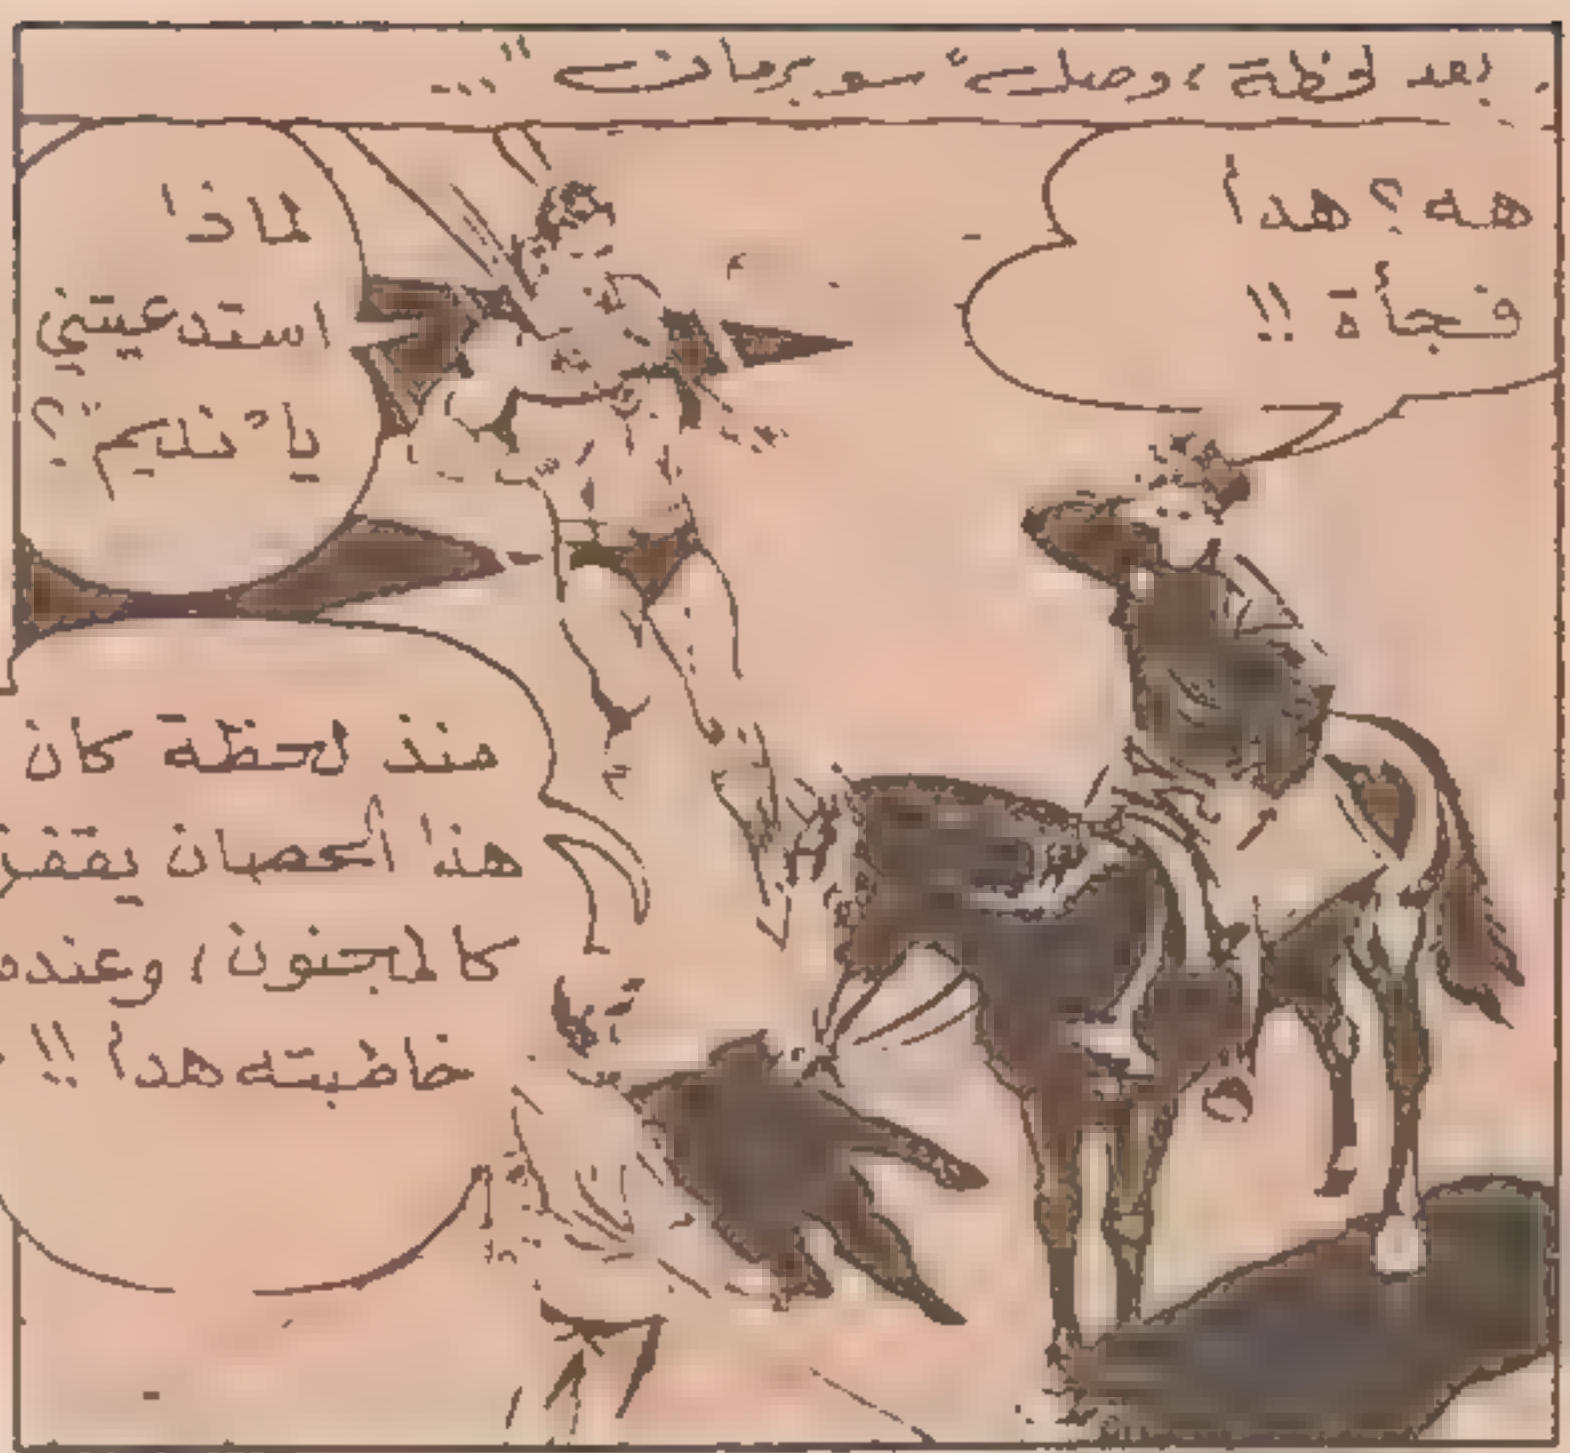 بعد لحظة، وصل "سوبرمان"...
هه؟ هدأ
فجأة!!
لماذا
استدعيتني
يا "نديم"؟
منذ لحظة كان
هذا الحصان يقفز
كالمجنون، وعندما
خاطبته هدأ!!